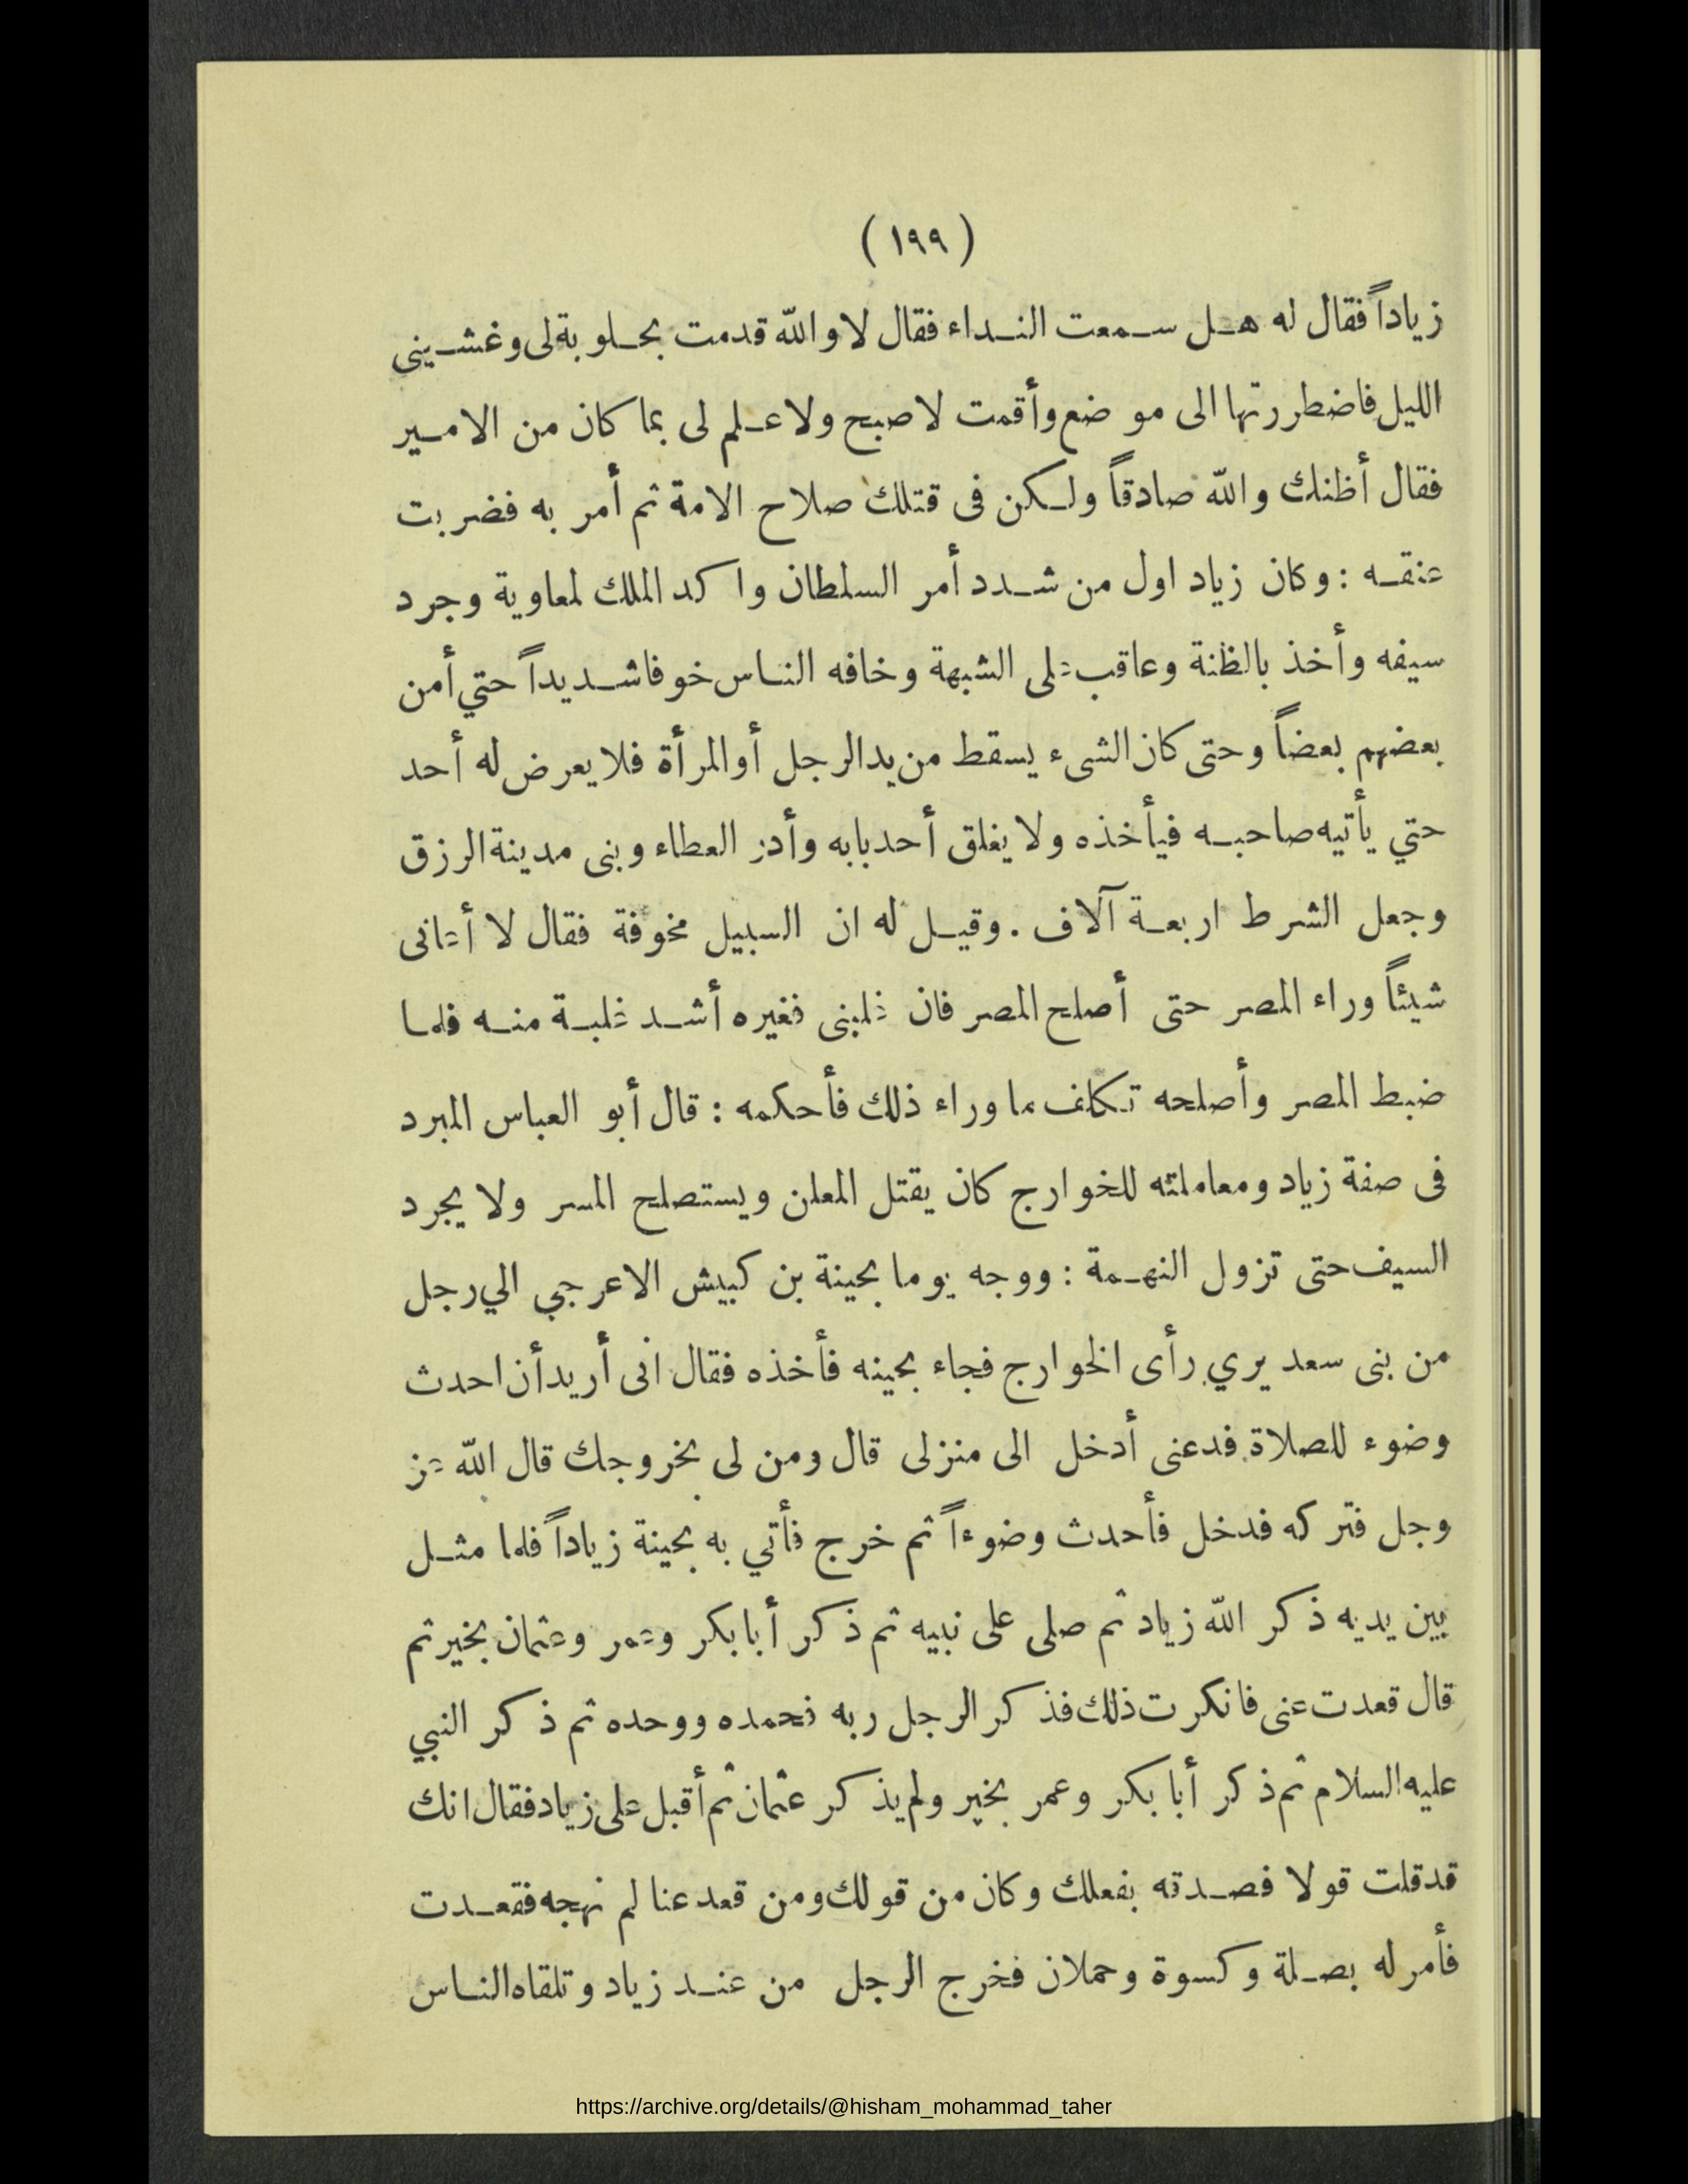 ( ١٩٩ )
زياداً فقال له هل سمعت النداء فقال لا والله قدمت بحلوبة لى وغشينى
الليل فاضطررتها الى موضع وأقمت لاصبح ولا علم لى بما كان من الامير
فقال أظنك والله صادقاً ولكن فى قتلك صلاح الامة ثم أمر به فضربت
عنقه : وكان زياد اول من شدد أمر السلطان واكد الملك لمعاوية وجرد
سيفه وأخذ بالظنة وعاقب على الشبهة وخافه الناس خوفا شديداً حتي أمن
بعضهم بعضاً وحتى كان الشىء يسقط من يد الرجل أو المرأة فلا يعرض له أحد
حتي يأتيه صاحبه فيأخذه ولا يغلق أحد بابه وأدر العطاء وبنى مدينة الرزق
وجعل الشرط اربعة آلاف . وقيل له ان السبيل مخوفة فقال لا أعانى
شيئاً وراء المصر حتى أصلح المصر فان غلبنى فغيره أشد غلبة منه فلما
ضبط المصر وأصلحه تكلف ما وراء ذلك فأحكمه : قال أبو العباس المبرد
فى صفة زياد ومعاملته للخوارج كان يقتل المعلن ويستصلح المسر ولا يجرد
السيف حتى تزول التهمة : ووجه يوما بحينة بن كبيش الاعرجي الي رجل
من بنى سعد يري رأى الخوارج فجاء بحينه فأخذه فقال انى أريد أن احدث
وضوء للصلاة فدعنى أدخل الى منزلى قال ومن لى بخروجك قال الله عز
وجل فتركه فدخل فأحدث وضوءاً ثم خرج فأتي به بحينة زياداً فلما مثل
بين يديه ذكر الله زياد ثم صلى على نبيه ثم ذكر أبا بكر وعمر وعثمان بخير ثم
قال قعدت عنى فانكرت ذلك فذكر الرجل ربه فحمده ووحده ثم ذكر النبي
عليه السلام ثم ذكر أبا بكر وعمر بخير ولم يذكر عثمان ثم أقبل على زياد فقال انك
قد قلت قولا فصدته بفعلك وكان من قولك ومن قعد عنا لم نهجه فقعدت
فأمر له بصلة وكسوة وحملان فخرج الرجل من عند زياد وتلقاه الناس
https://archive.org/details/@hisham_mohammad_taher